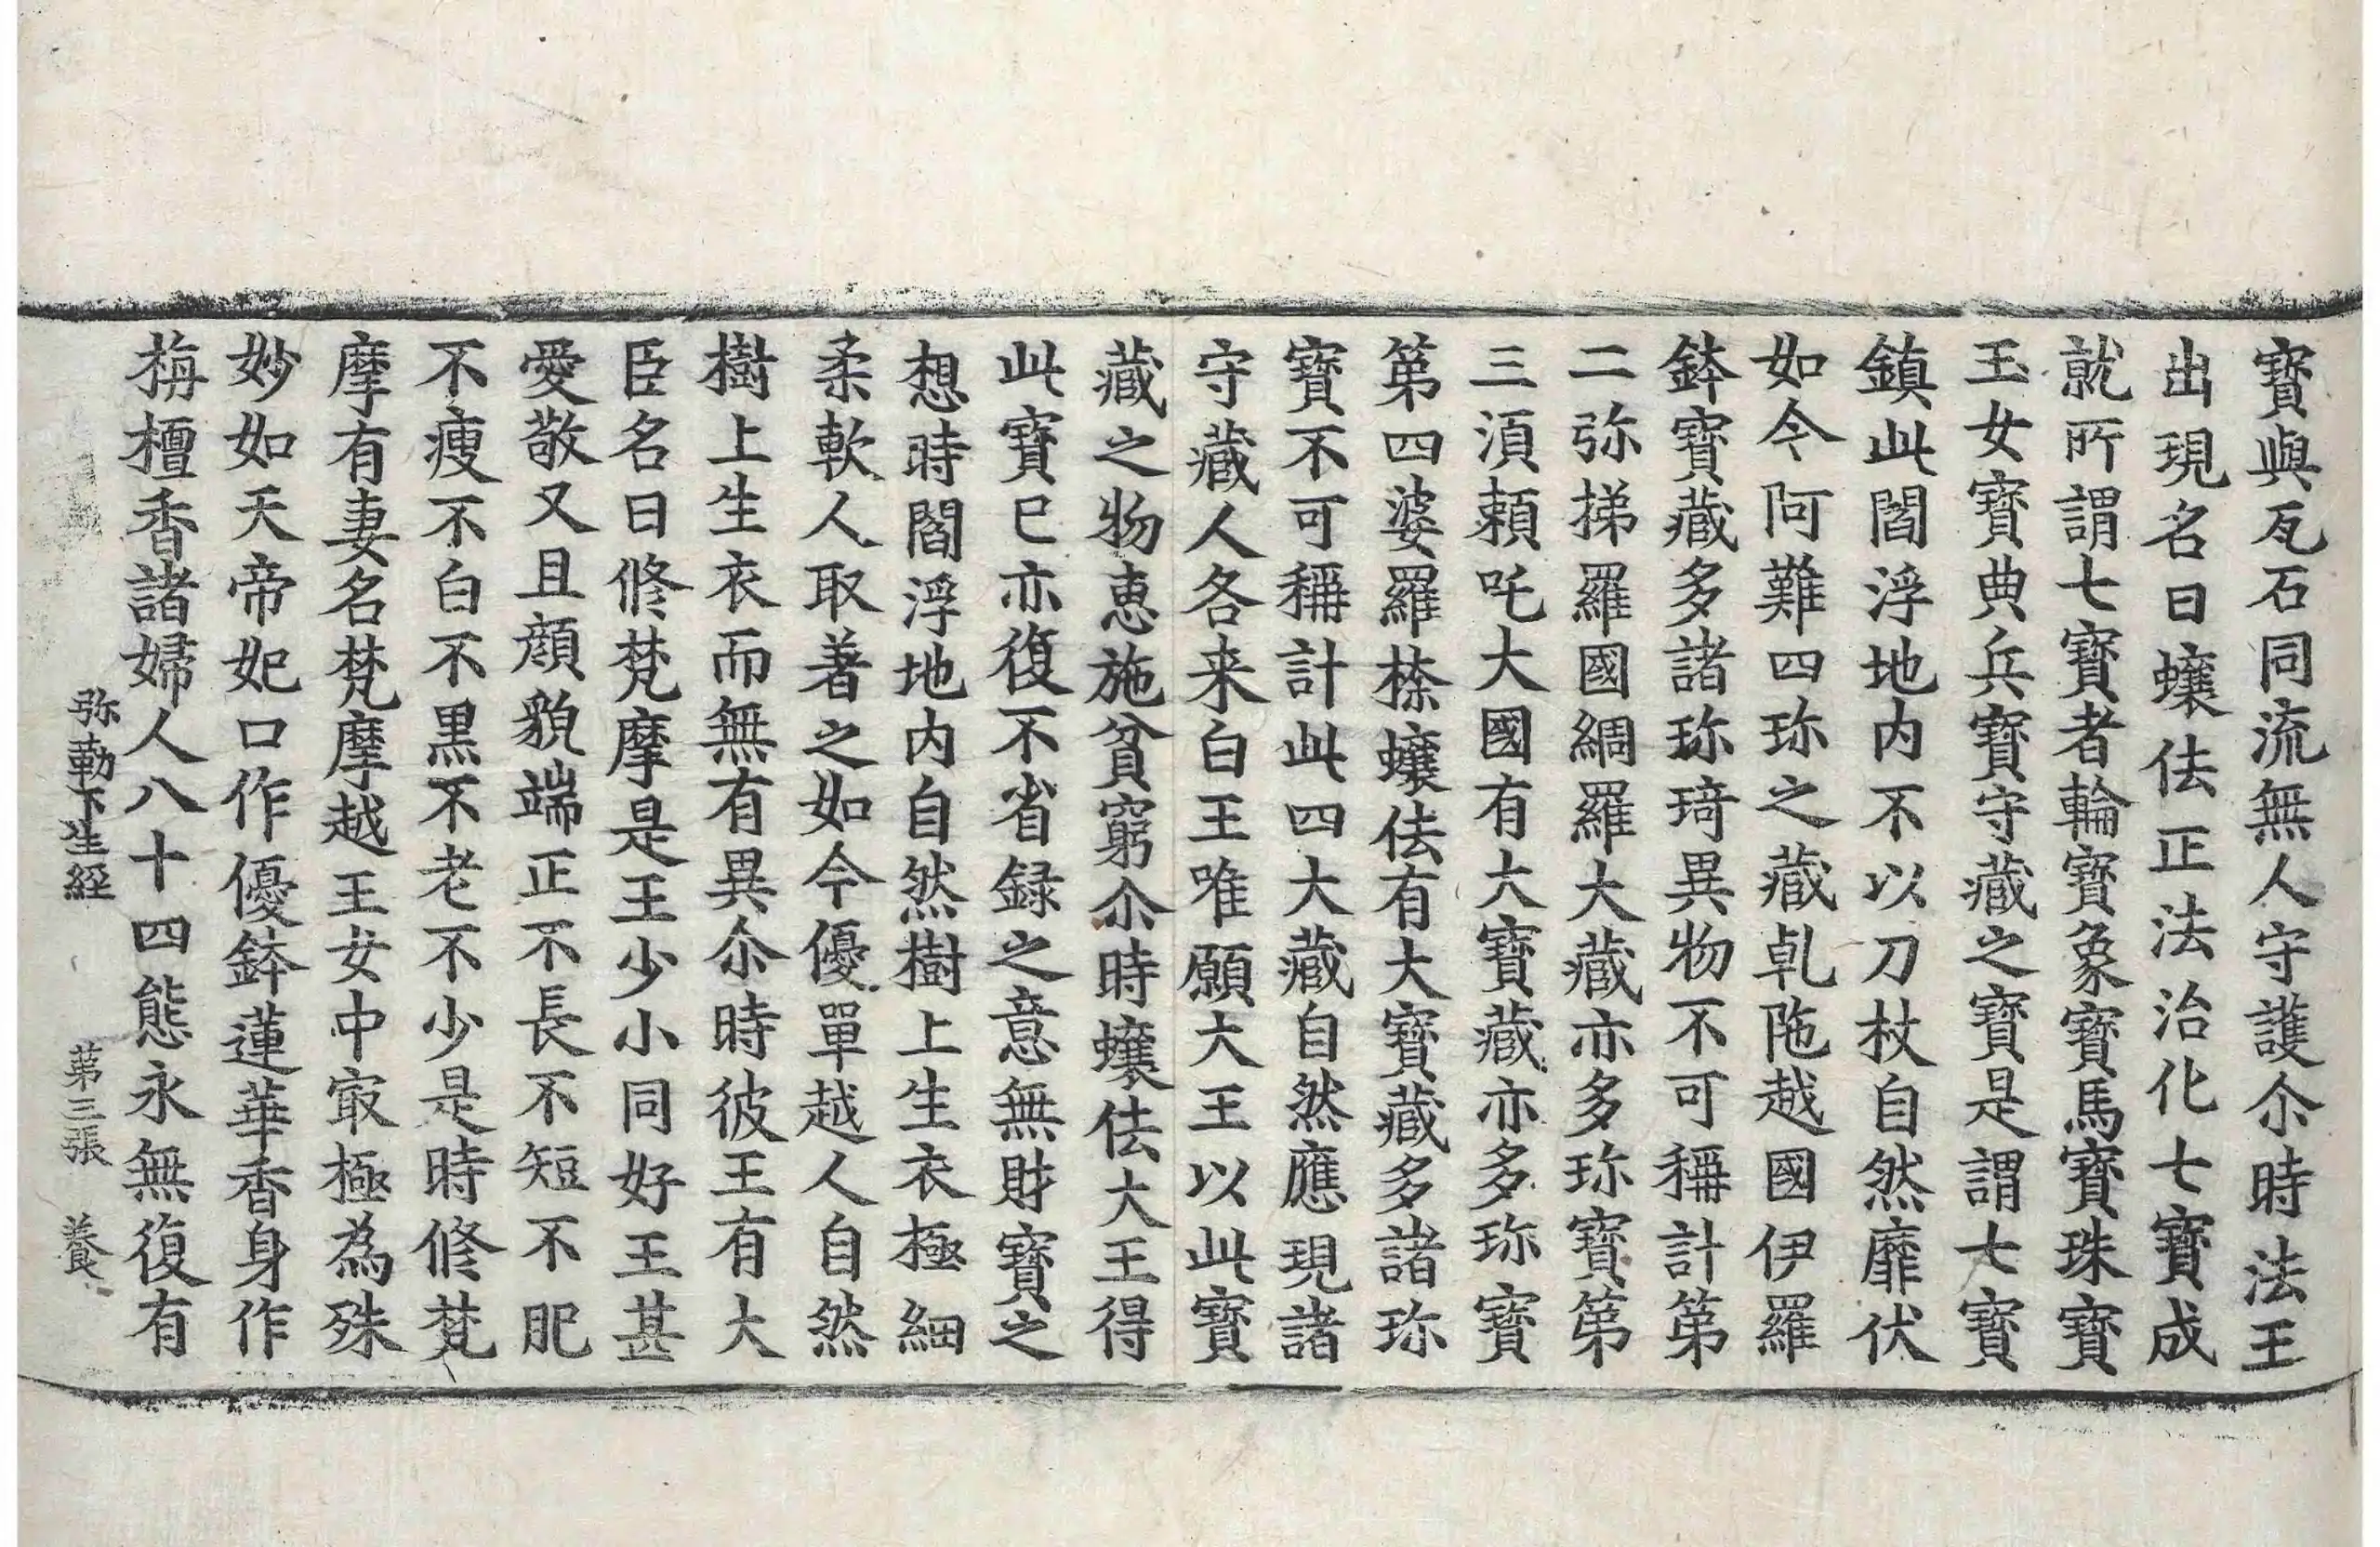 寶與瓦石同流無人守護尒時法王
出現名曰蠰佉正法治化七寶成
就所謂七寶者輪寶象寶馬寶珠寶
玉女寶典兵寶守藏之寶是謂七寶
鎮此閻浮地内不以刀杖自然靡伏
如今阿難四珎之藏乹陁越國伊羅
鉢寶藏多諸珎琦異物不可稱計第
二弥掦羅國綢羅大藏亦多珎寶第
三湏頼吒大國有大寶藏亦多珎寶
第四婆羅㮈蠰佉有大寶藏多諸珎
寶不可稱計此四大藏自然應現諸
守藏人各来白王唯願大王以此寶
藏之物惠施貧窮尒時蠰佉大王得
此寶已亦復不省録之意無財寶之
想時閻浮地内自然樹上生衣極細
柔軟人取著之如今優單越人自然
樹上生衣而無有異尒時彼王有大
臣名曰修梵摩是王少小同好王甚
愛敬又且顔貌端正不長不短不肥
不瘦不白不黒不老不少是時修梵
摩有妻名梵摩越王女中㝡極為殊
妙如天帝妃口作優鉢蓮華香身作
栴檀香諸婦人八十四態永無復有
弥勒下生經 第三張 養